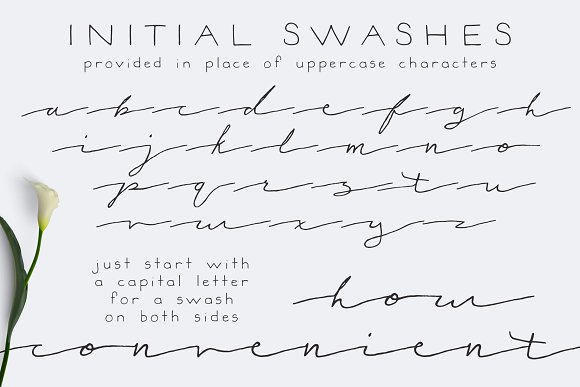 INITIAL SWASHES
provided in place of uppercase characters
a b c d e f g h
i j k l m n o
p q r s t u
v w x y z
just start with
a capital letter
for a swash
on both sides
how
convenient